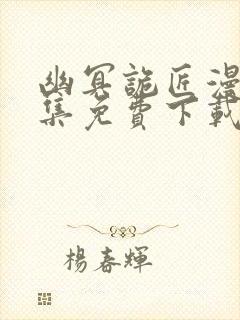 幽冥詭匠漫
集免費下載
楊春輝